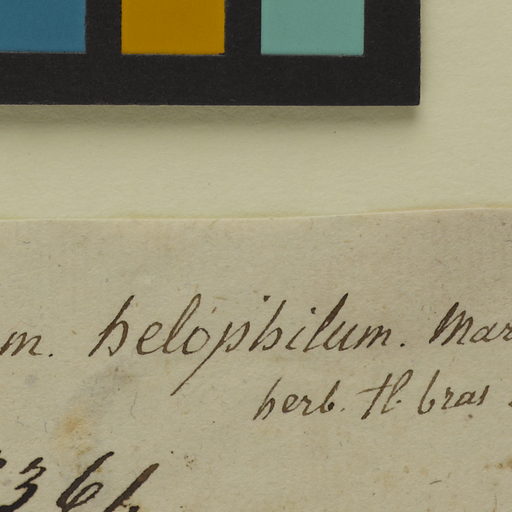 m. helophilum. Mar
herb. fl. bras.
361.